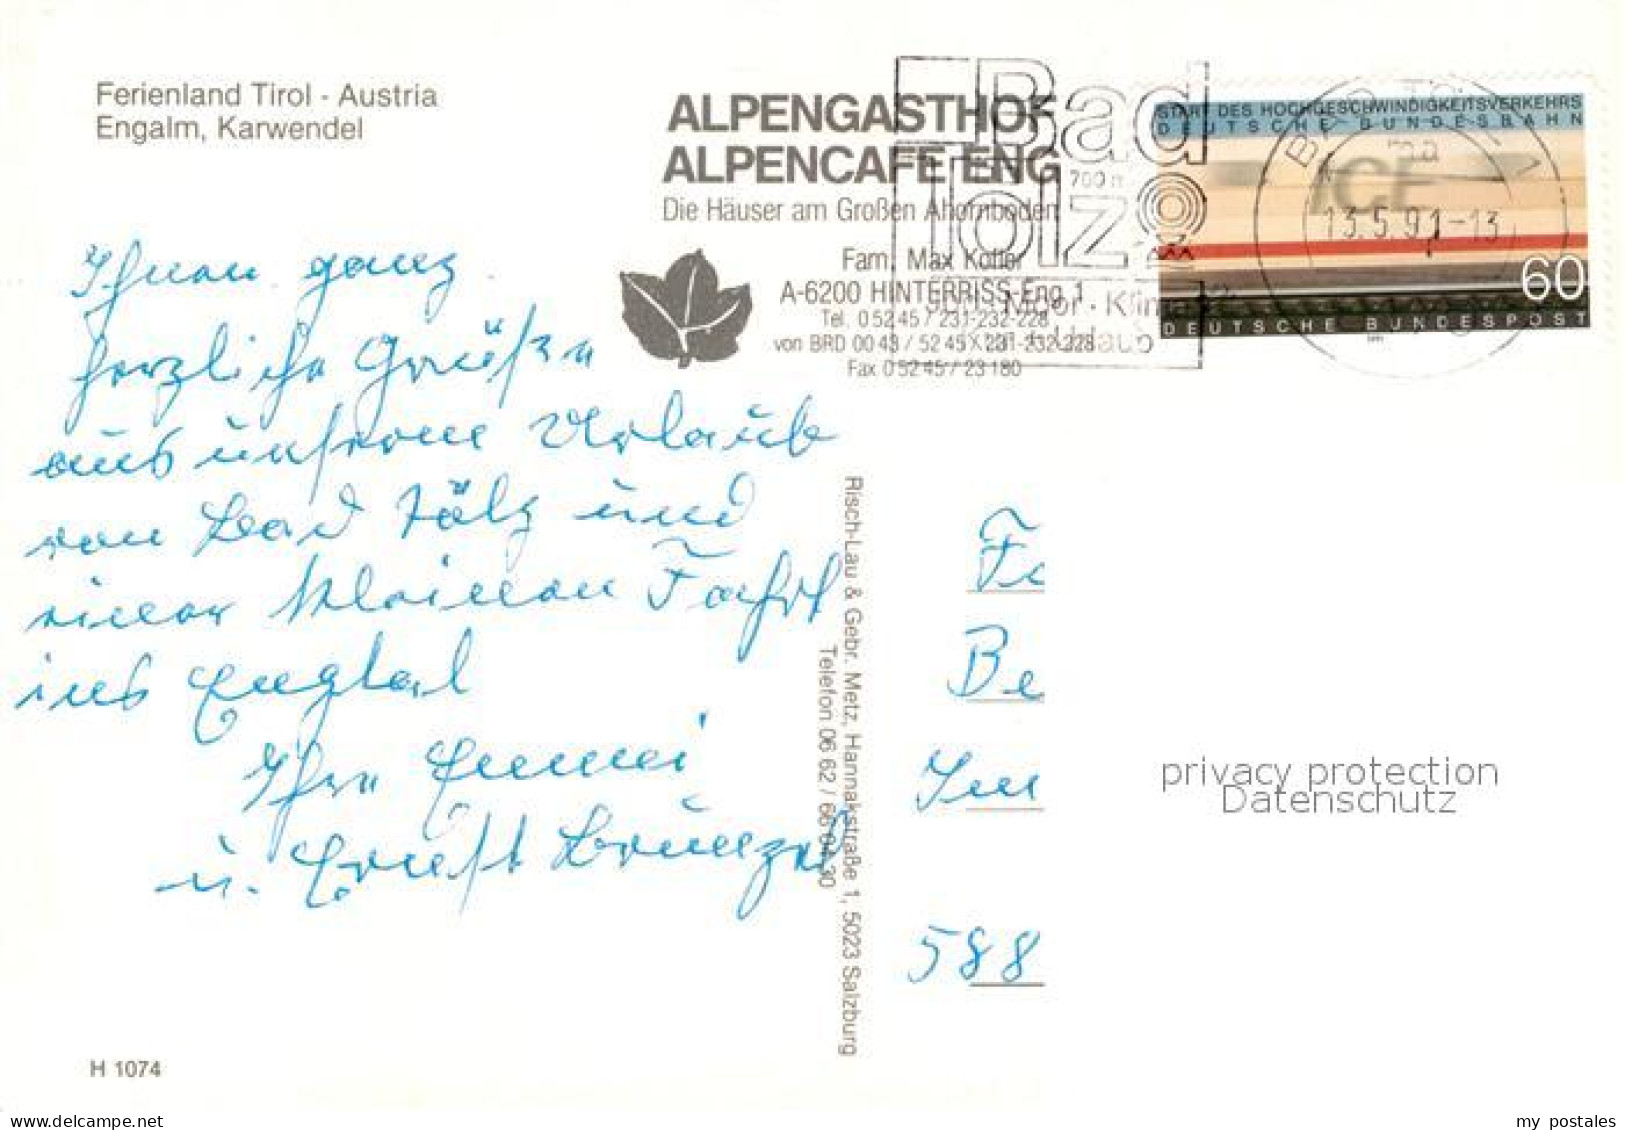 Ferienland Tirol - Austria
Engalm, Karwendel
ALPENGASTHOF
ALPENCAFE ENG
Die Häuser am Großen Ahornboden
Fam. Max Kofler
A-6200 HINTERRISS-Eng 1
Tel. 0 52 45 / 231-232-228
von BRD 00 43 / 52 45 / 231-232-228
Fax 0 52 45 / 23 180
Bad
700 m
Tölz
Moor · Klima
Urlaub
START DES HOCHGESCHWINDIGKEITSVERKEHRS
DEUTSCHE BUNDESBAHN
ICE
60
DEUTSCHE BUNDESPOST
1991
BAD TÖLZ
ma
13.5.91-13
Ihnen ganz
herzliche Grüße
aus unserem Urlaub
von Bad Tölz und
einer kleinen Fahrt
ins Engtal
Ihre Emmi
u. Ernst
Risch-Lau & Gebr. Metz, Hannakstraße 1, 5023 Salzburg
Telefon 06 62 / 66 04 30
Fa
Be
588
privacy protection
Datenschutz
H 1074
delcampe.net
my_postales